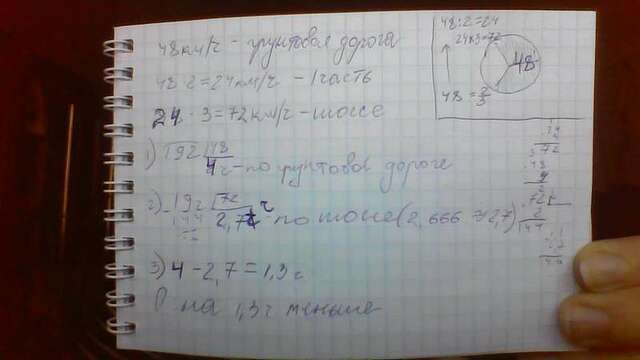 48 км/ч - грунтовая дорога
48:2=24 км/ч - 1 часть
24 · 3=72 км/ч - шоссе
1) 192 48
4 ч - по грунтовой дороге
2) 192 72
144 2,7 ч по шоссе (2,666 ≈ 2,7)
3) 4 - 2,7 = 1,3 ч
О на 1,3 ч меньше
48:2=24
24·3=72
48
48 = 2/3